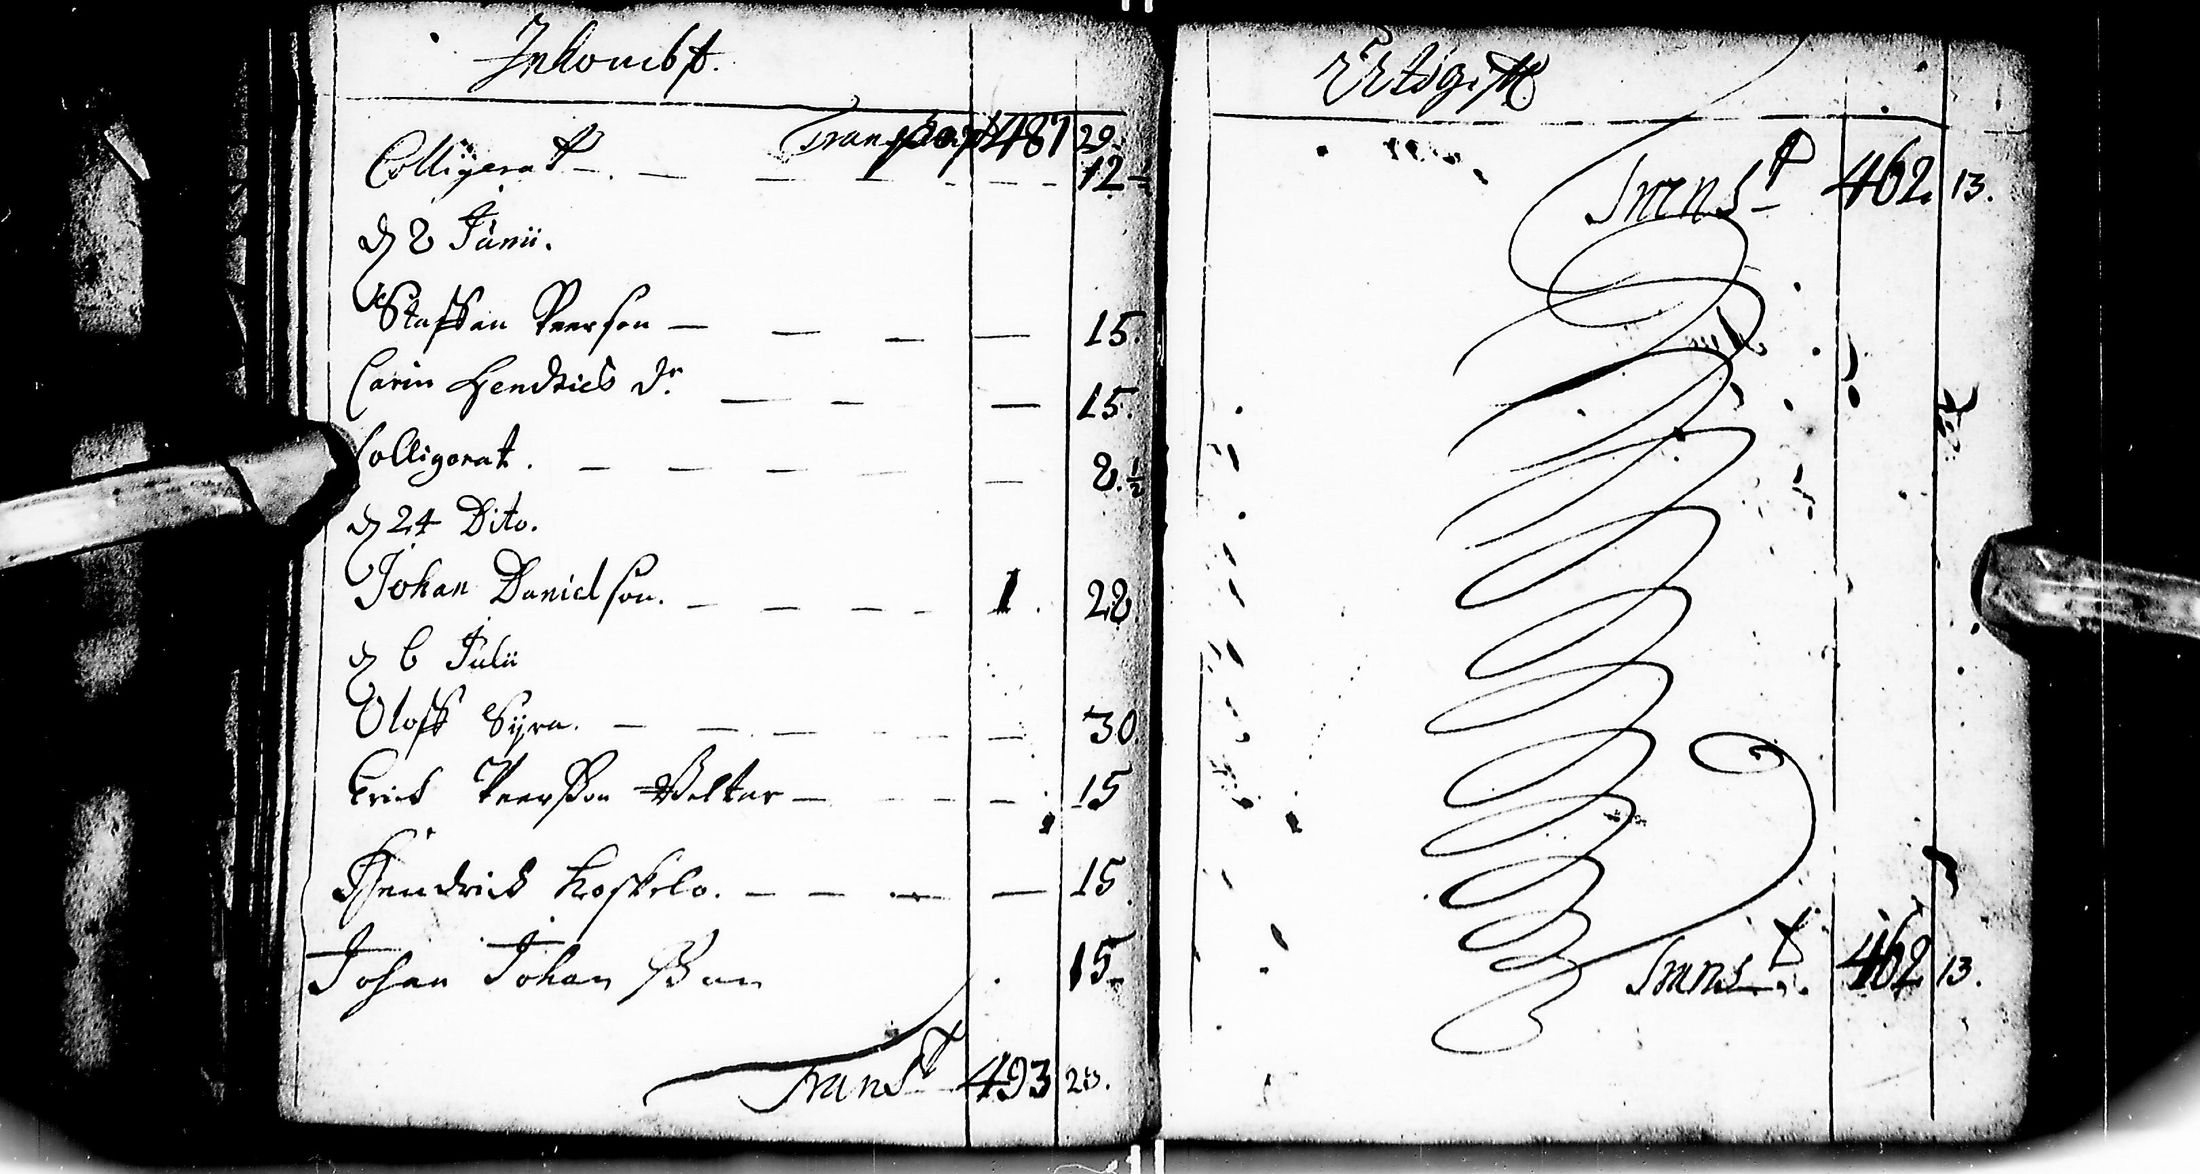 Inkombst.
Transport 487 29.
Colligerat — 12 ½
d 2 Junii.
Staffan Peerson — 15.
Carin Hendrics dr. — 15.
Colligerat. — 8. ½
d 24 Dito.
Johan Danielson. — 1. 28
d 6 Julii
Oloff Syra. — 30.
Erick Peersson Weltar — 15
Hendrick Koskela. — 15
Johan Johansson 15
Transt 493
Uttgifft
Transt 462. 13.
Transt. 462 13.